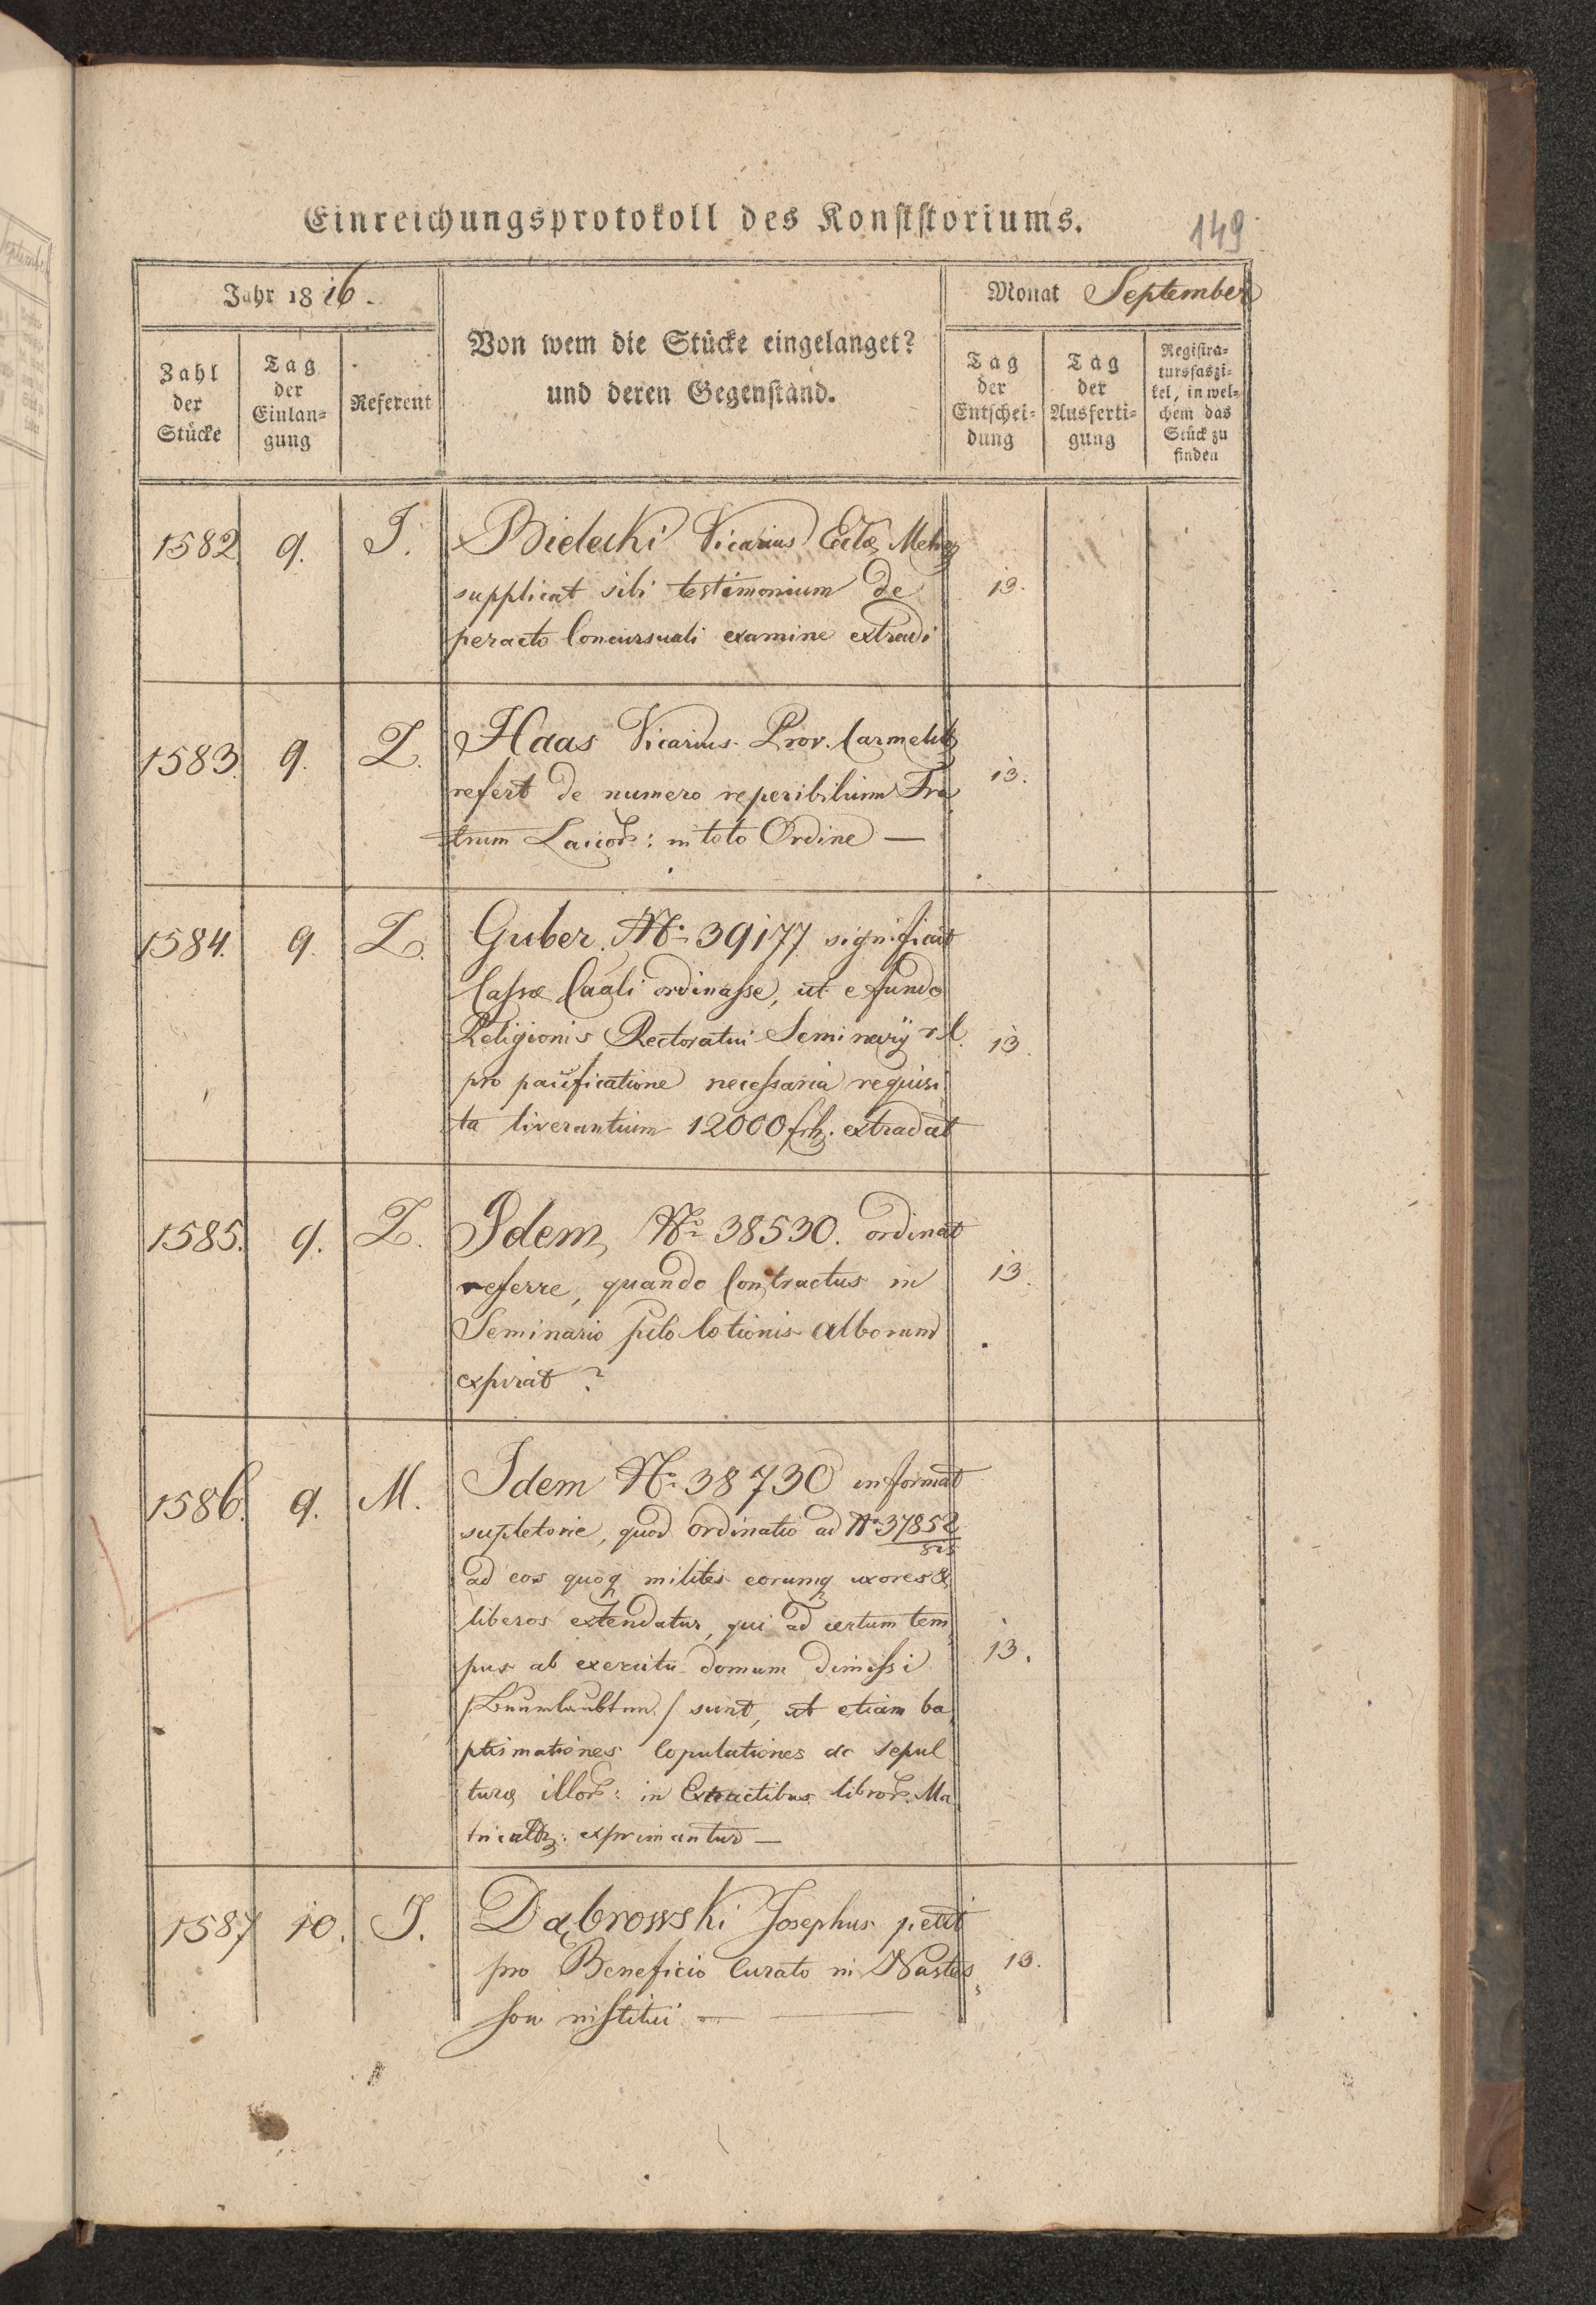 Einreichungsprotokoll des Konsistoriums.
149
Jahr 1816.
Von wem die Stücke eingelanget?
und deren Gegenstand.
Monat September
Zahl der Stücke
Tag der Einlangung
Referent
Tag der Entscheidung
Tag der Ausfertigung
Registratursfaszikel, in welchem das Stück zu finden
1582 9. J. Bielecki Vicarius Ecclae Metrop
supplicat sibi testimonium de 13.
peracto Concursuali examine extradi
1583. 9. Z. Haas Vicarius Prov. Carmelit
refert de numero reperibilium Fra 13.
trum Laicor: in toto Ordine —
1584. 9. Z. Guber. No 39177 significat
Cassae Caali ordinasse, ut e fundo
Religionis Rectoratui Seminarij r.l. 13.
pro necessaria requisi
ta liverantium 12000 extradat
1585. 9. Z. Idem No 38530. ordinat
referre, quando Contractus in 13.
Seminario pcto lotionis alborum
expirat?
1586. 9. M. Idem No 38730 informat
supletorie, quod ordinatio ad No 37852
ad eos quoq milites eorumq uxores &
liberos extendatur, qui ad certum tem
pus ab exercitu domum dimissi 13.
sunt, ut etiam ba
ptismationes Copulationes ac sepul
turae illor: in Extractibus libror. Ma
trical: exprimantur —
1587 10. J. Dąbrowski Josephus petit
pro Beneficio Curato in Wastes 13.
sou institui —